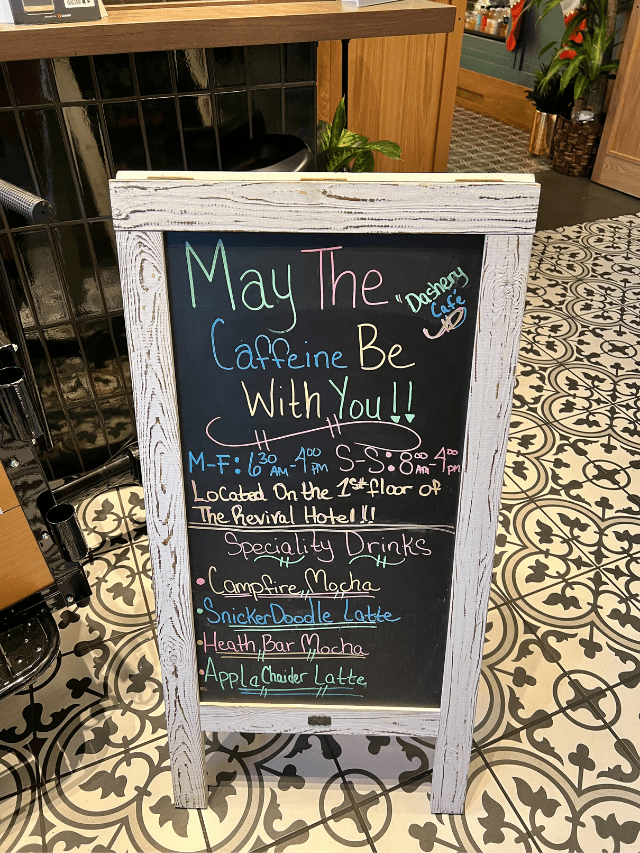 May The
"Dashery
Café
Caffeine Be
With You!!
M-F: 6³⁰ AM-4⁰⁰ PM S-S: 8⁰⁰ AM-4⁰⁰ PM
Located On the 1st floor of
The Revival Hotel!!
Speciality Drinks
• Campfire Mocha
• SnickerDoodle Latte
• Heath Bar Mocha
• AppLa Chaider Latte